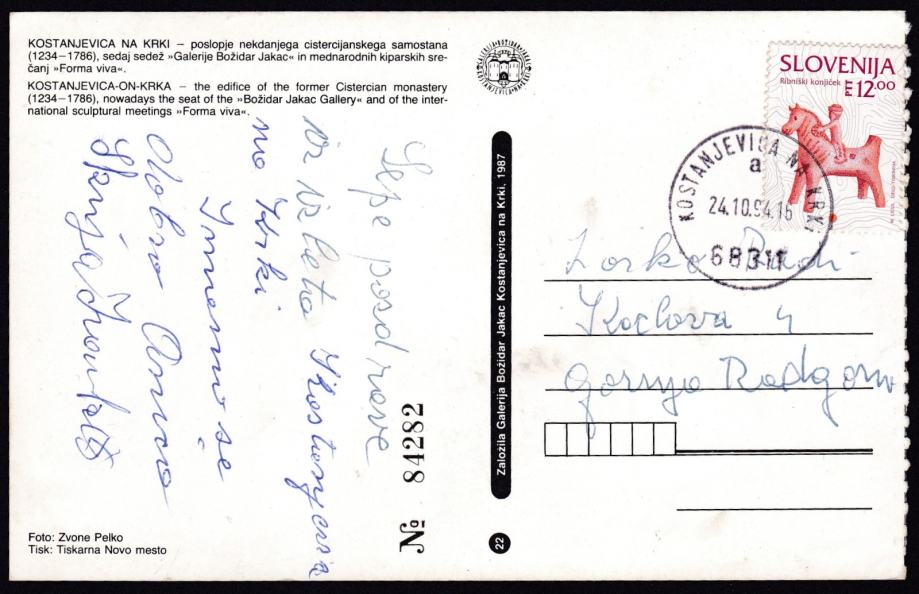 KOSTANJEVICA NA KRKI – poslopje nekdanjega cistercijanskega samostana
(1234–1786), sedaj sedež »Galerije Božidar Jakac« in mednarodnih kiparskih sre-
čanj »Forma viva«.
KOSTANJEVICA-ON-KRKA – the edifice of the former Cistercian monastery
(1234–1786), nowadays the seat of the »Božidar Jakac Gallery« and of the inter-
national sculptural meetings »Forma viva«.
Lepe pozdrave
iz izleta
na Krki
Imamo se
dobro
Nº 84282
Foto: Zvone Pelko
Tisk: Tiskarna Novo mesto
Založila Galerija Božidar Jakac Kostanjevica na Krki, 1987
22
SLOVENIJA
Ribniški konjiček
12.00
KOSTANJEVICA NA KRKI
a
24.10.94.16
68311
Zorko
Kocljova 4
Gornja Radgona